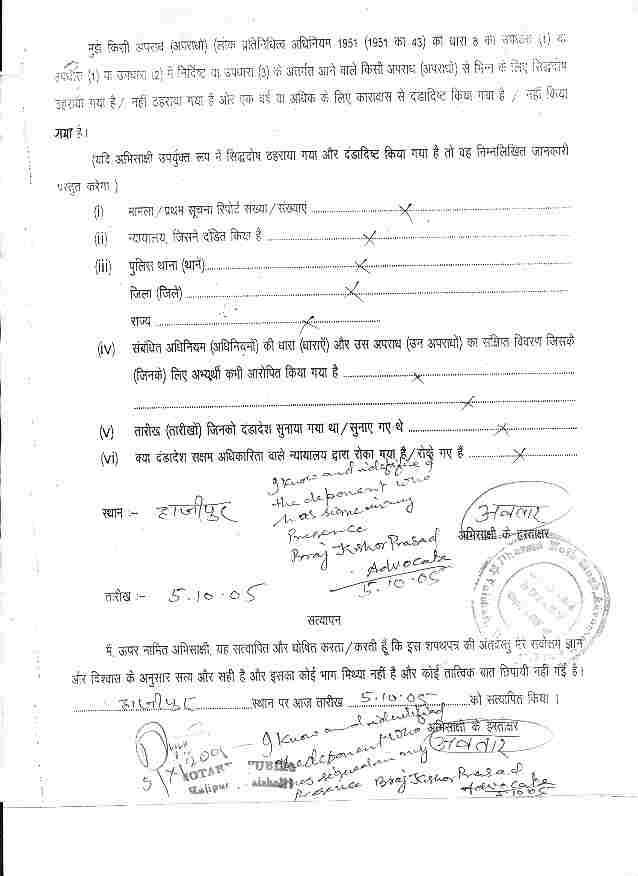 मुझे किसी अपराध (अपराधों) (लोक प्रतिनिधित्व अधिनियम 1951 (1951 का 43) की धारा 8 की उपधारा (1) या
उपधारा (1) या उपधारा (2) में निर्दिष्ट या उपधारा (3) के अंतर्गत आने वाले किसी अपराध (अपराधों) से भिन्न के लिए सिद्धदोष
ठहराया गया है / नहीं ठहराया गया है और एक वर्ष या अधिक के लिए कारावास से दंडादिष्ट किया गया है / नहीं किया
गया है।
(यदि अभिसाक्षी उपर्युक्त रूप में सिद्धदोष ठहराया गया और दंडादिष्ट किया गया है तो वह निम्नलिखित जानकारी
प्रस्तुत करेगा )
(i) मामला / प्रथम सूचना रिपोर्ट संख्या / संख्याएं ........ X
(ii) न्यायालय, जिसने दंडित किया है ........ X
(iii) पुलिस थाना (थाने) ........ X
जिला (जिले) ........ X
राज्य ........ X
(iv) संबंधित अधिनियम (अधिनियमों) की धारा (धाराएँ) और उस अपराध (उन अपराधों) का संक्षिप्त विवरण जिसके
(जिनके) लिए अभ्यर्थी कभी आरोपित किया गया है ........ X
........ X
(v) तारीख (तारीखों) जिनको दंडादेश सुनाया गया था / सुनाए गए थे ........ X
(vi) क्या दंडादेश सक्षम अधिकारिता वाले न्यायालय द्वारा रोका गया है / रोके गए हैं ........ X
I know and identifie
the deponent who
has
Presence
Braj Kishor Prasad
Advocate
5.10.05
स्थान :- हाजीपुर
अवतार
अभिसाक्षी के हस्ताक्षर
तारीख :- 5.10.05
सत्यापन
मैं, ऊपर नामित अभिसाक्षी, यह सत्यापित और घोषित करता / करती हूँ कि इस शपथपत्र की अंतर्वस्तु मेरे सर्वोत्तम ज्ञान
और विश्वास के अनुसार सत्य और सही है और इसका कोई भाग मिथ्या नहीं है और कोई तात्विक बात छिपायी नहीं गई है।
हाजीपुर स्थान पर आज तारीख 5.10.05 को सत्यापित किया ।
अभिसाक्षी के हस्ताक्षर
अवतार
I know and identified
the deponent who
has my
Presence Braj Kishor Prasad
Advocate
5.10.05
NOTARY